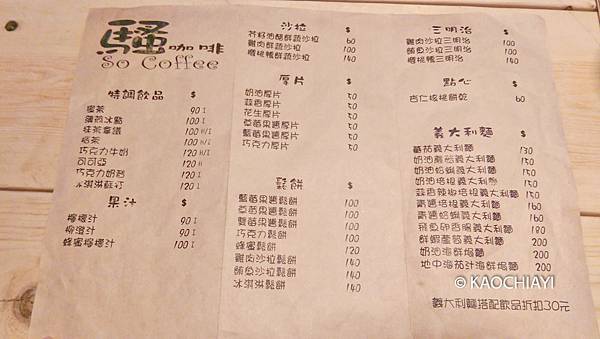 騷咖啡
So Coffee
特調飲品 $
蜜茶 90 I
薄荷冰點 100 I
抹茶拿鐵 100 H/I
奶茶 100 H/I
巧克力牛奶 120 H/I
可可亞 120 H
巧克力奶酒 120 I
冰淇淋蘇打 120 I
果汁 $
檸檬汁 90 I
柳澄汁 90 I
蜂蜜檸檬汁 100 I
沙拉 $
芥籽油醋鮮蔬沙拉 60
雞肉鮮蔬沙拉 100
櫻桃鴨鮮蔬沙拉 140
厚片 $
奶油厚片 50
蒜香厚片 50
花生厚片 50
草莓果醬厚片 50
藍莓果醬厚片 50
巧克力厚片 50
鬆餅 $
藍莓果醬鬆餅 100
草莓果醬鬆餅 100
雙莓果醬鬆餅 100
巧克力鬆餅 100
蜂蜜鬆餅 120
雞肉沙拉鬆餅 140
鮪魚沙拉鬆餅 140
冰淇淋鬆餅 140
三明治 $
雞肉沙拉三明治 100
鮪魚沙拉三明治 100
櫻桃鴨三明治 140
點心 $
杏仁核桃餅乾 60
義大利麵 $
蕃茄義大利麵 130
奶油蘑菇義大利麵 150
奶油蛤蜊義大利麵 150
奶油培根義大利麵 150
蒜香辣椒培根義大利麵 150
青醬培根義大利麵 160
青醬蛤蜊義大利麵 160
飛魚卵香腸義大利麵 180
鮮蝦蘆筍義大利麵 200
奶油海鮮焗麵 200
地中海茄汁海鮮焗麵 200
義大利麵搭配飲品折扣30元
© KAOCHIAYI